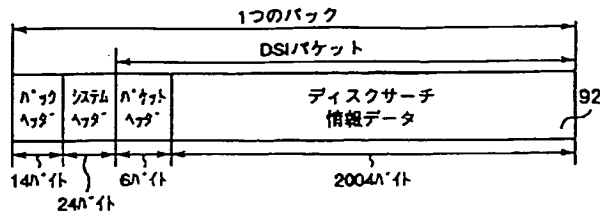 1つのパック
DSIパケット
パック
ヘッダー
システム
ヘッダー
パケット
ヘッダー
ディスクサーチ
情報データ
92
14バイト
24バイト
6バイト
2004バイト